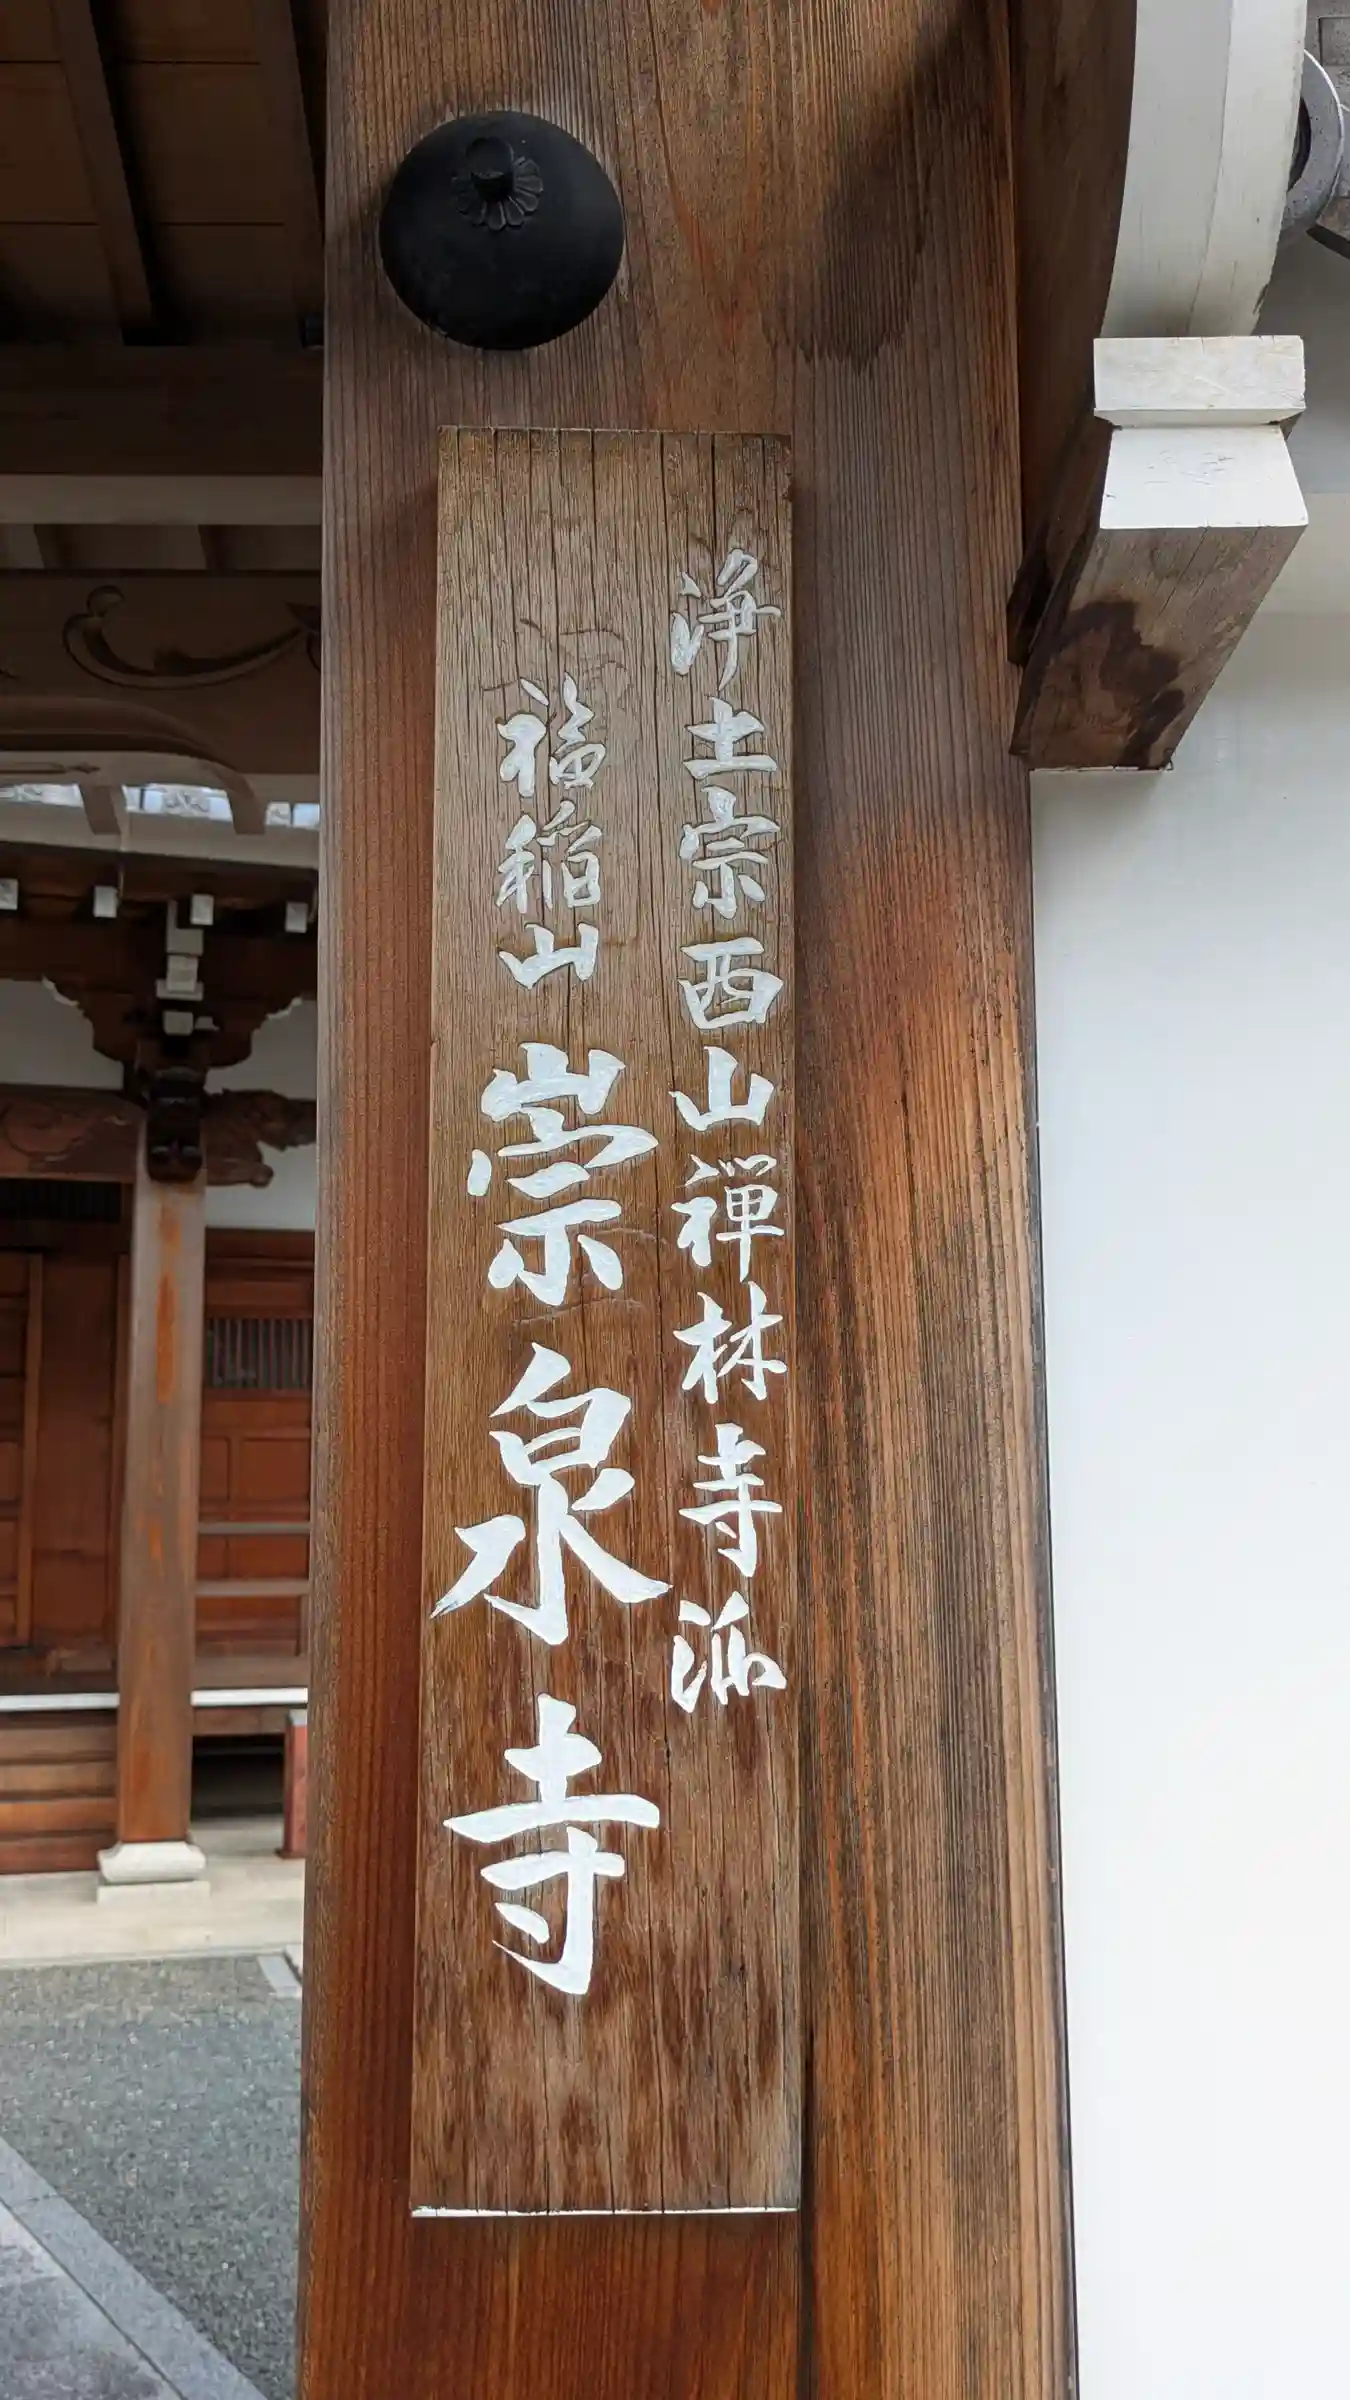 浄土宗西山禅林寺派
福稲山崇泉寺